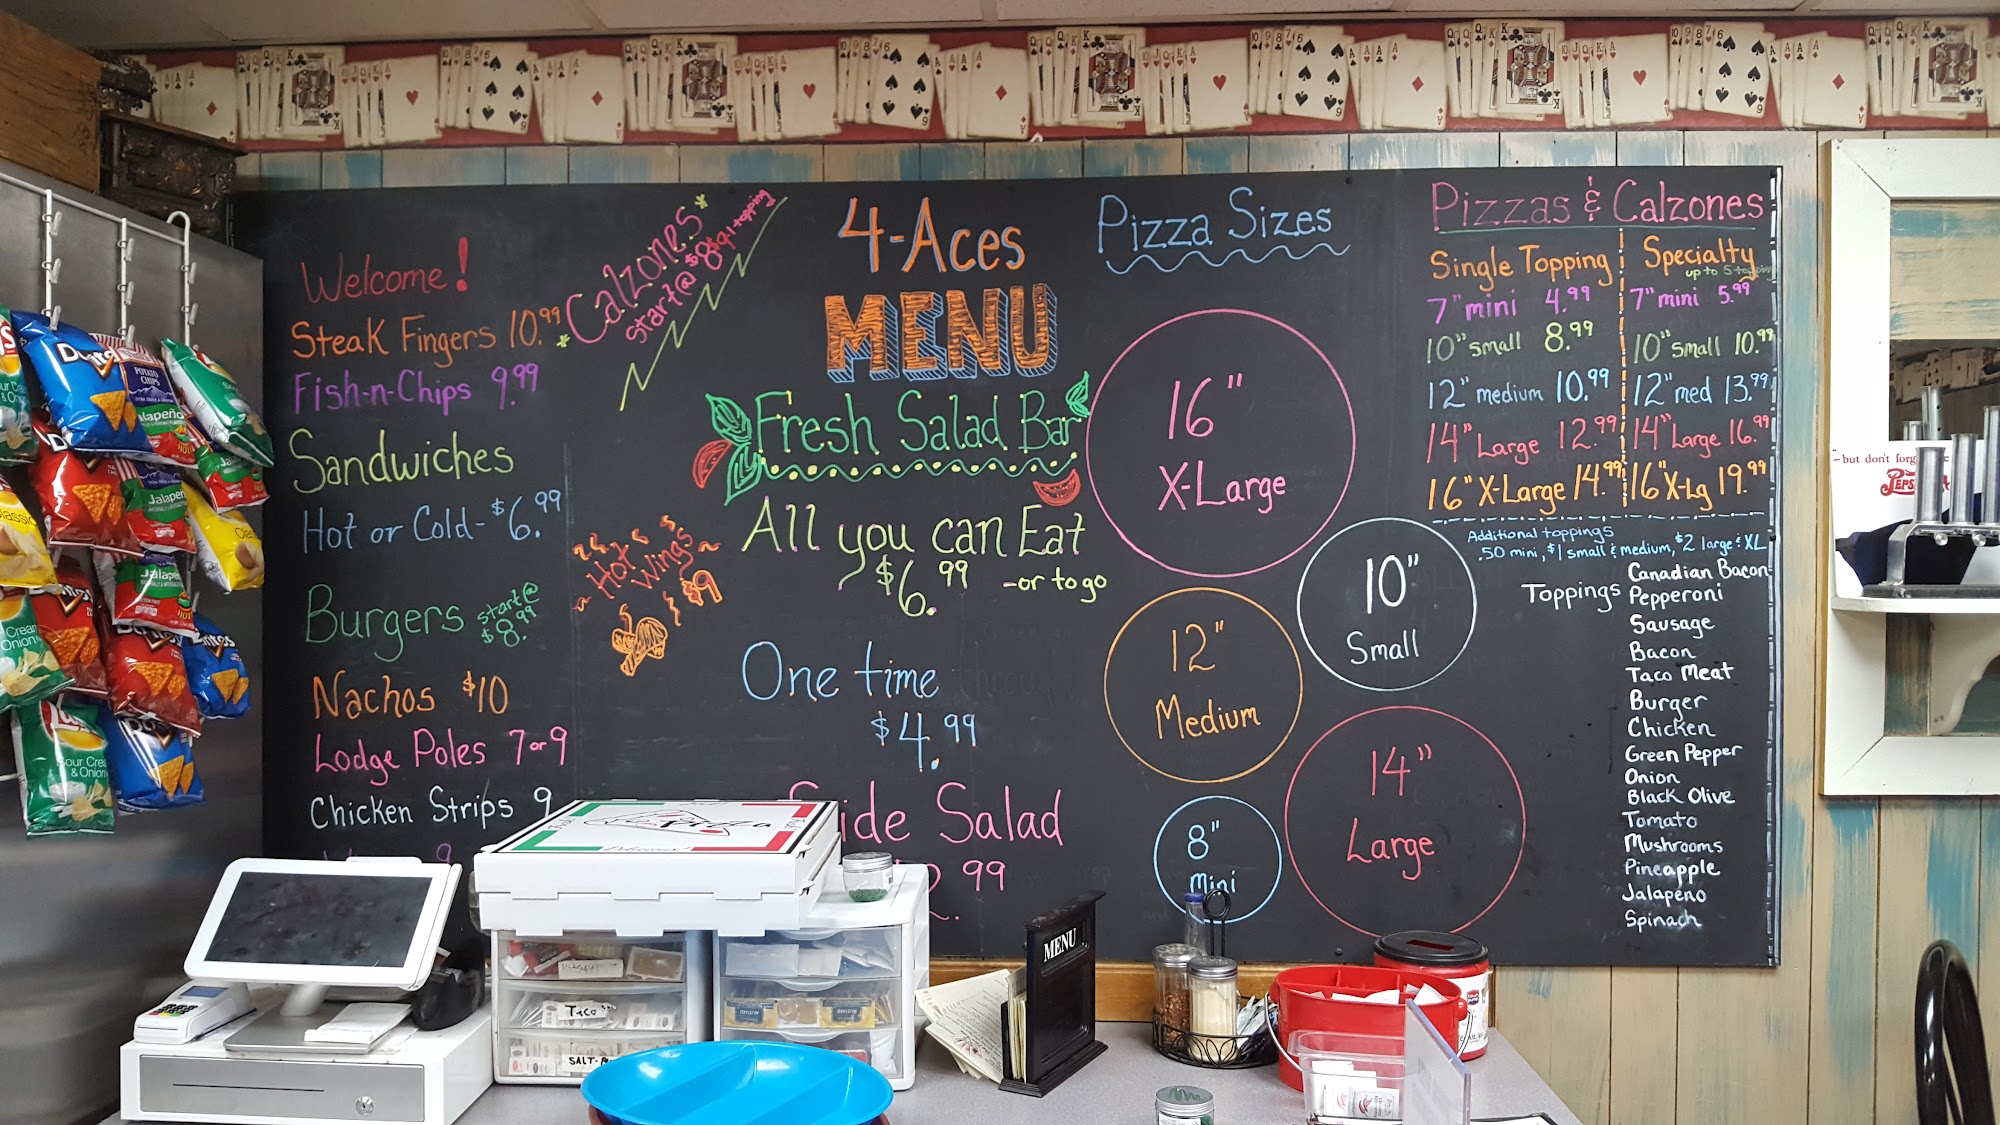 Welcome!
Steak Fingers 10.99
Fish-n-Chips 9.99
*Calzones*
start @ $8.99 1 topping
Sandwiches
Hot or Cold - $6.99
Burgers start @ $8.99
Hot Wings
$9
Nachos $10
Lodge Poles 7 or 9
Chicken Strips 9
9
4-Aces
MENU
Fresh Salad Bar
All you can Eat
$6.99 -or to go
One time
$4.99
Side Salad
2.99
Pizza Sizes
16"
X-Large
10"
Small
12"
Medium
14"
Large
8"
mini
Pizzas & Calzones
Single Topping
7" mini 4.99
10" small 8.99
12" medium 10.99
14" Large 12.99
16" X-Large 14.99
Specialty
up to 5 topping
7" mini 5.99
10" small 10.99
12" med 13.99
14" Large 16.99
16" X-Lg 19.99
Additional toppings
.50 mini, $1 small & medium, $2 large & XL
Toppings
Canadian Bacon
Pepperoni
Sausage
Bacon
Taco Meat
Burger
Chicken
Green Pepper
Onion
Black Olive
Tomato
Mushrooms
Pineapple
Jalapeno
Spinach
-but don't forg
PEPS
MENU
Taco
SALT
POTATO CHIPS
Jalapeño
Jalapeño
Jalapeño
Sour Cream
& Onion